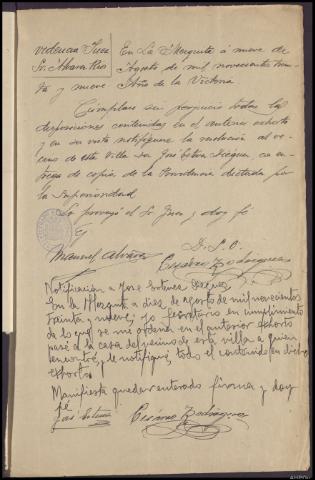 Providencia Juez
Sr. Alvarez Rios
En La Mezquita á nueve de
Agosto de mil novecientos trein-
ta y nueve Año de la Victoria
Cúmplase sin perjuicio todas las
disposiciones contenidas en el anterior exhorto
y en su vista notifíquese la resolución al ve-
cino de esta Villa Don José Esteva Diéguez con en-
trega de copia de la Providencia dictada por
la Superioridad
Lo proveyó el Sr Juez y doy fe
Manuel Alvarez
D. S. O.
Cesáreo Rodriguez
Notificación a Jose Esteves Dieguez
En La Mezquita a diez de agosto de mil novecientos
treinta y nueve; yo Secretario en cumplimento
de lo que se me ordena en el anterior exhorto
pasé a la casa del vecino de esta villa a quien
encontré, le notifiqué todo el contenido en dicho
exhorto.
Manifiesta quedar enterado firma y doy
fe
José Esteves
Cesáreo Rodriguez